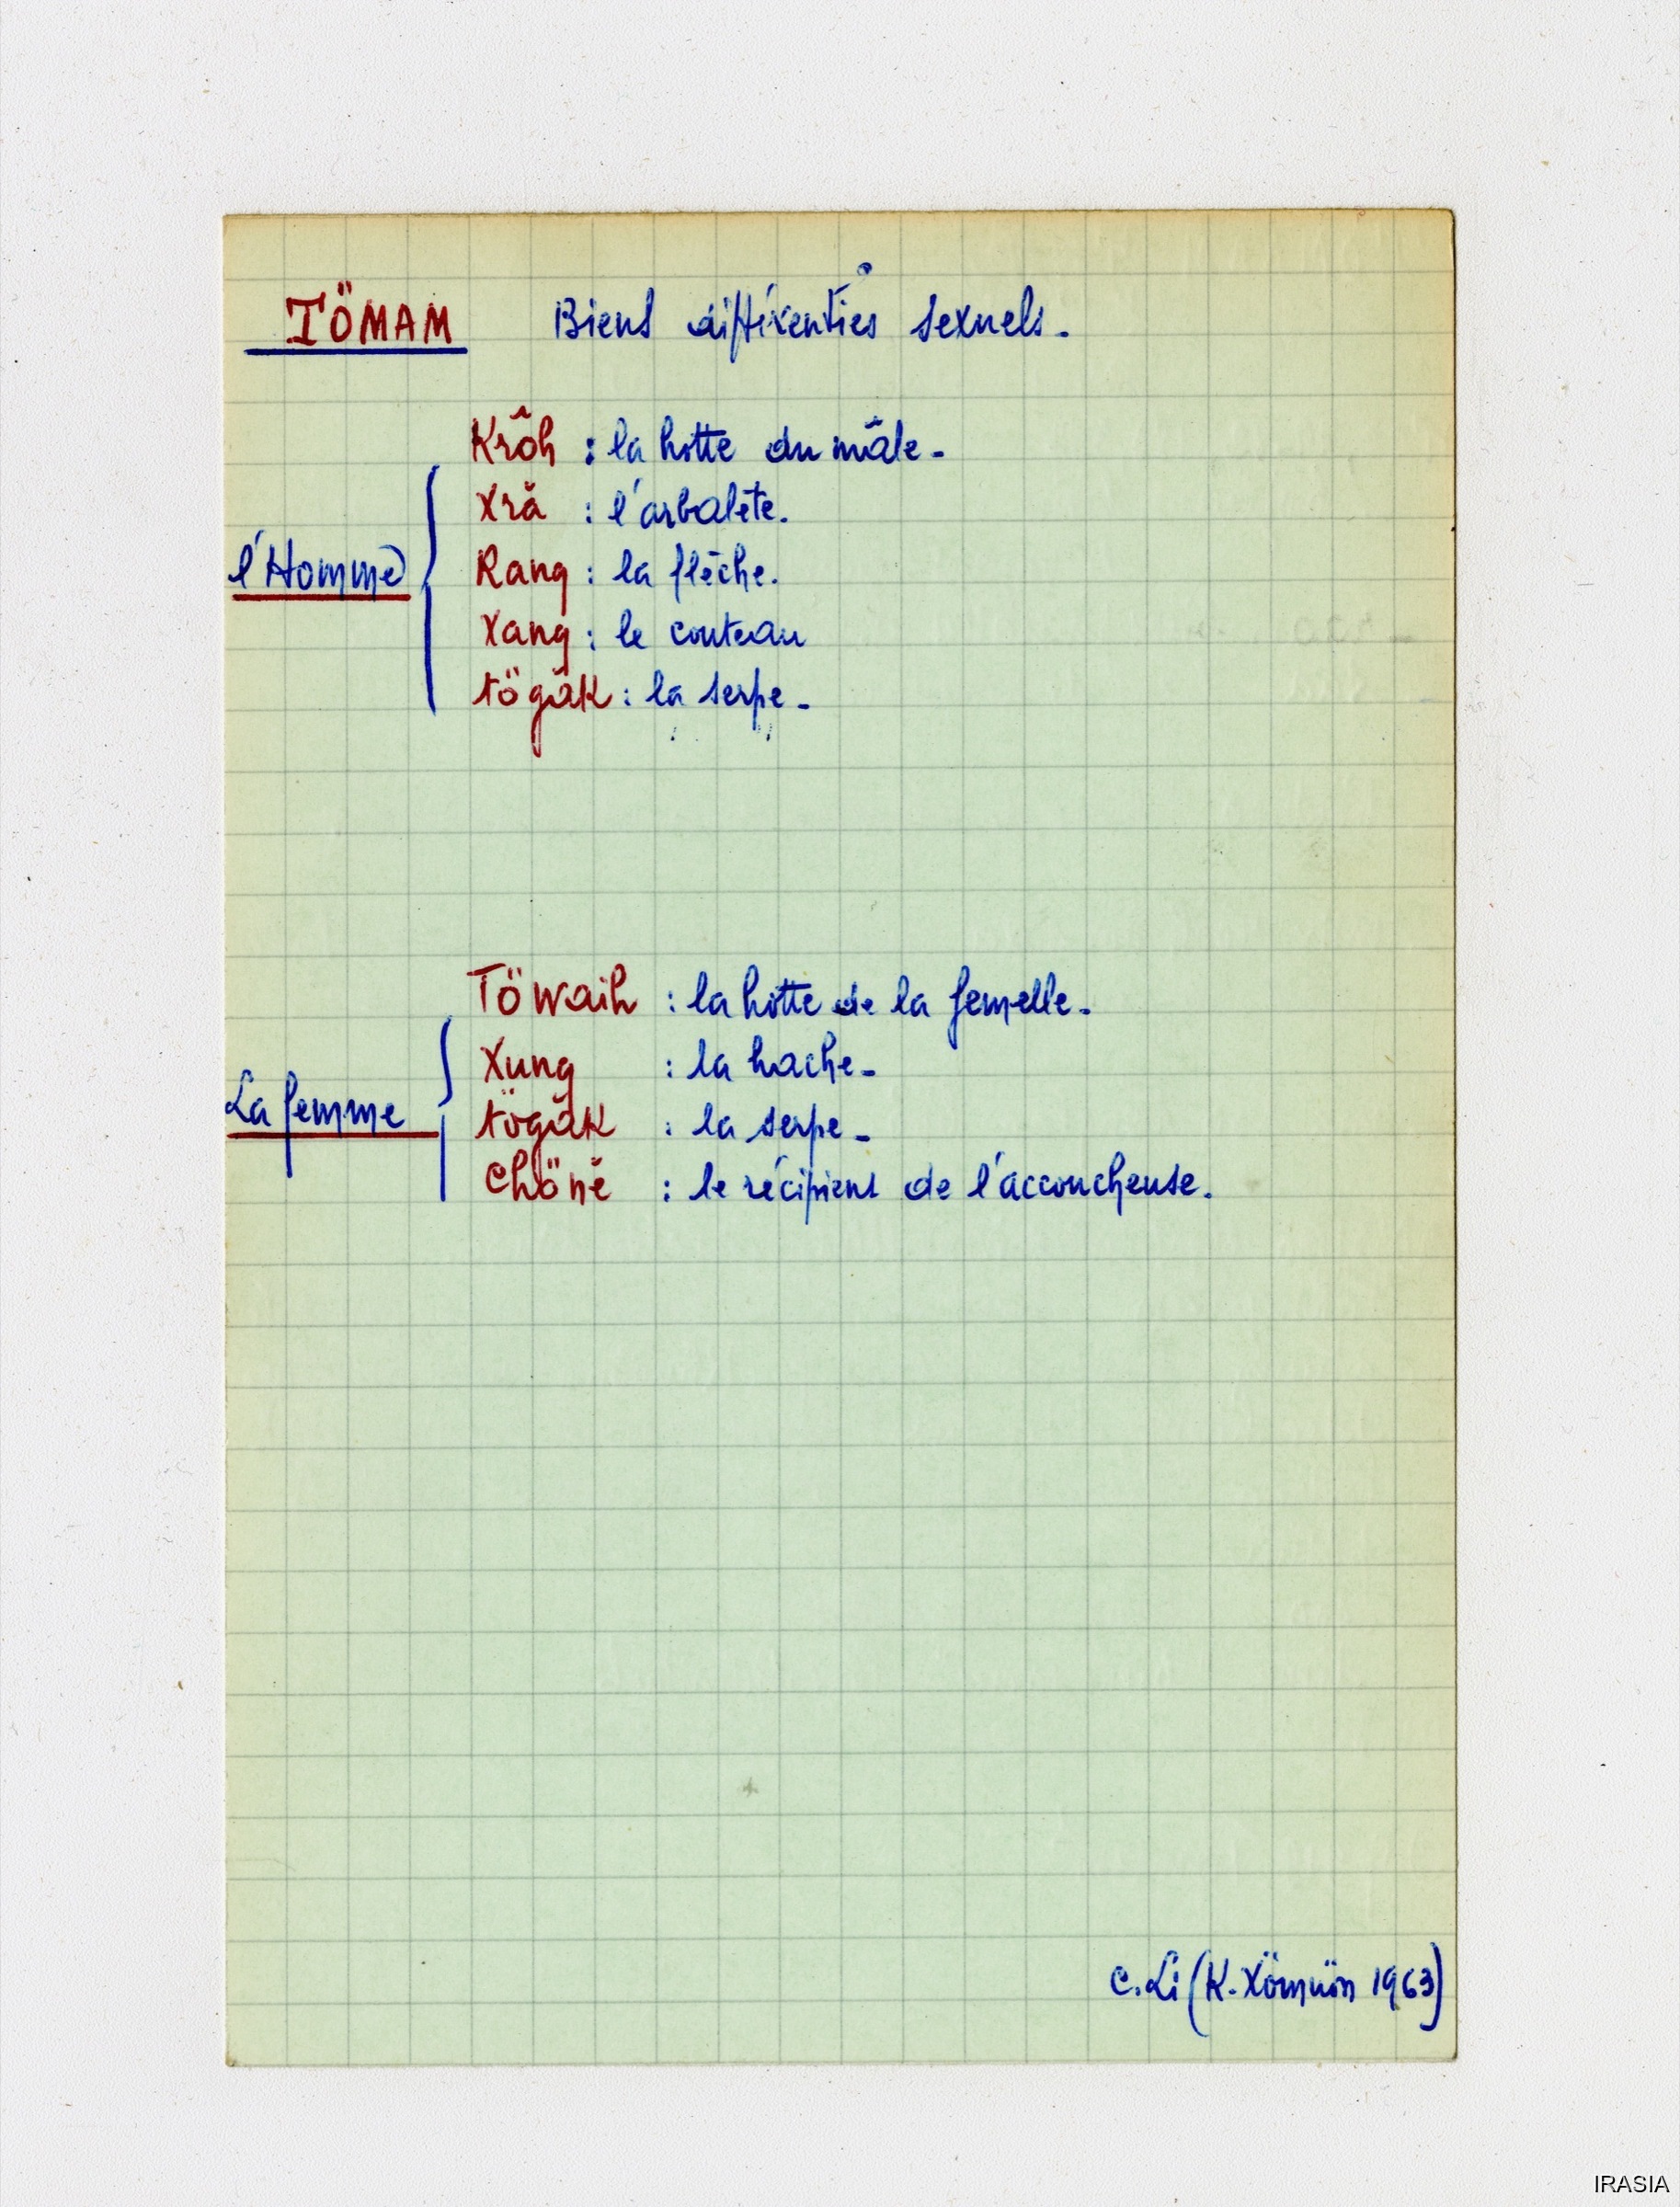 TÖMAM Biens différentiés sexuels.
Krôh : la hotte du mâle.
Xră : l'arbalète.
l'Homme
Rang : la flèche.
Xang : le couteau
tögăk : la serpe.
Töwaih : la hotte de la femelle.
Xung : la hache.
La femme
tögăk : la serpe.
Chönĕ : le récipient de l'accoucheuse.
C. Li (K. Xömuön 1963)
IRASIA